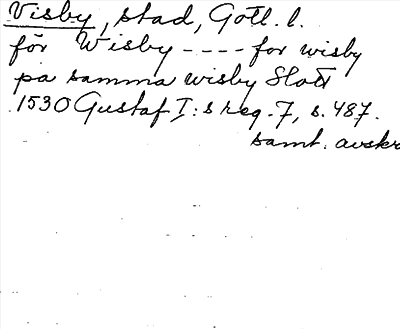 Visby, stad, Gotl. l.
för Wisby - - - - for wisby
pa samma wisby Slott
1530 Gustaf I:s reg. 7, s. 487.
samt. avskr